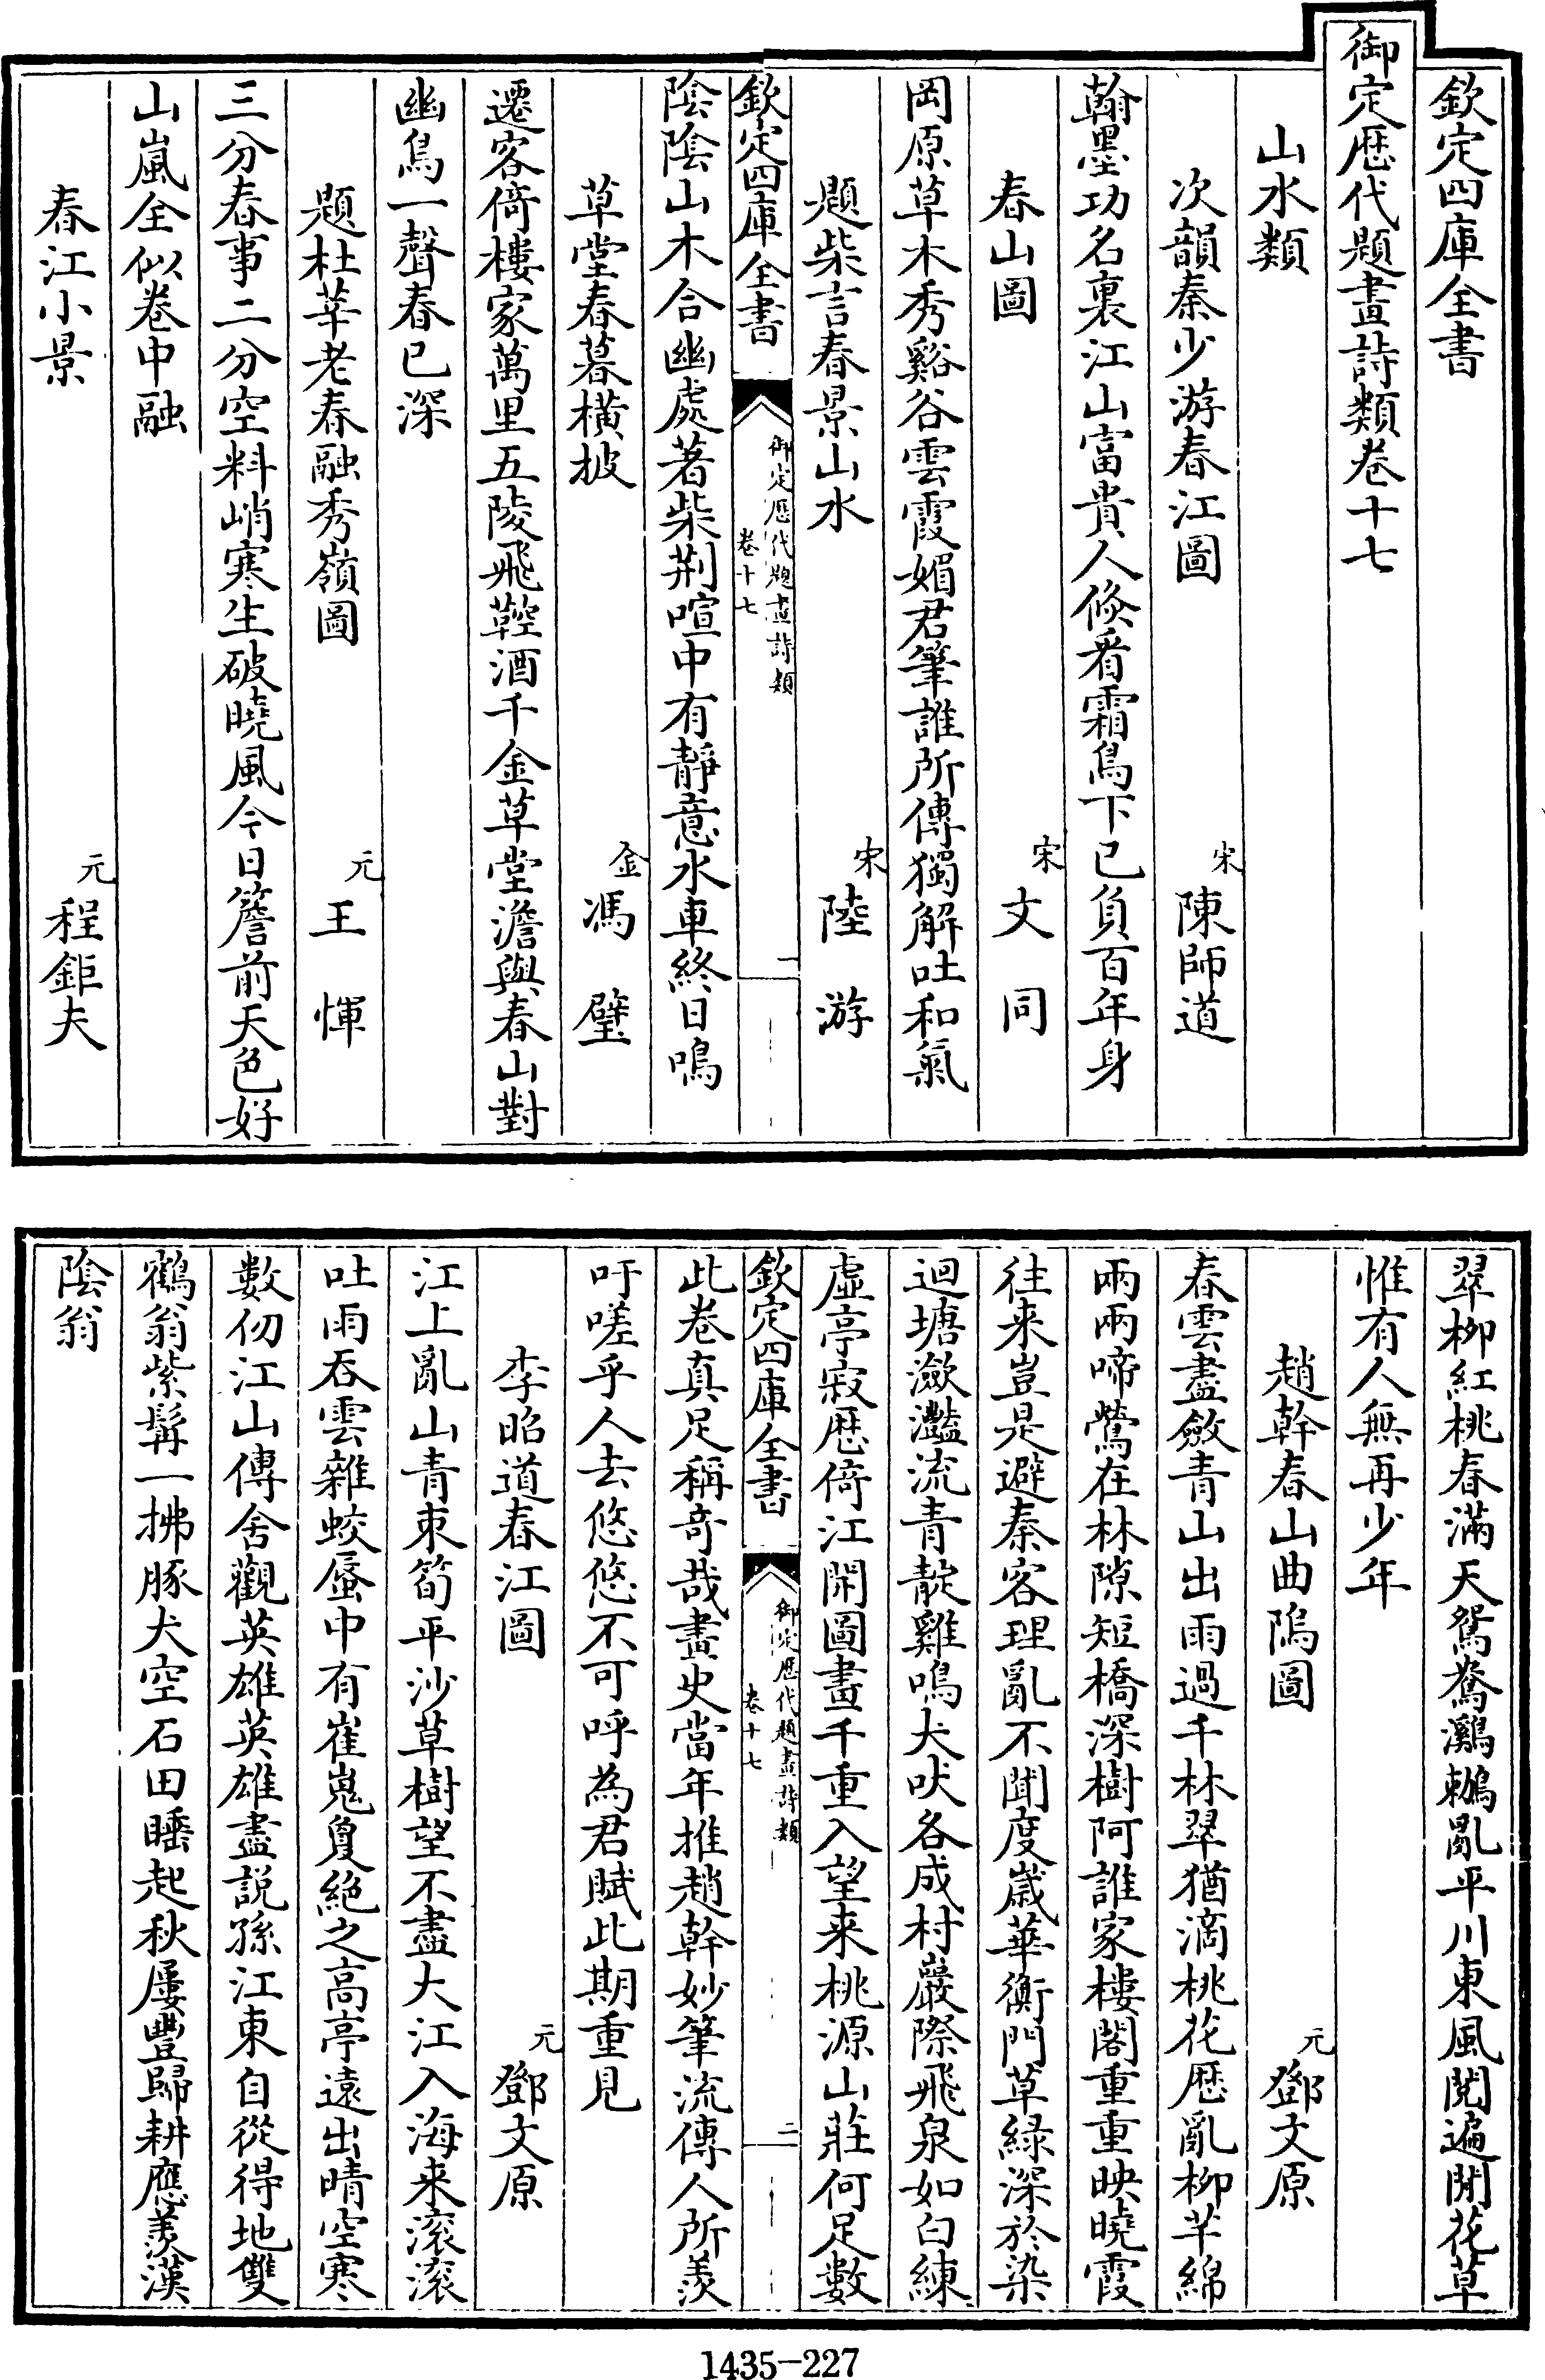 欽定四庫全書
御定歷代題畫詩類卷十七
山水類
次韻秦少游春江圖 宋 陳師道
翰墨功名裏江山富貴人倐看霜鳥下已負百年身
春山圖 宋 文同
岡原草木秀谿谷雲霞媚君筆誰所傳獨解吐和氣
題柴言春景山水 宋 陸游
欽定四庫全書 御定歷代題畫詩類 卷十七 一
陰陰山木合幽處著柴荆喧中有靜意水車終日鳴
草堂春暮横披 金 馮璧
遷客倚樓家萬里五陵飛鞚酒千金草堂澹與春山對
幽鳥一聲春已深
題杜莘老春融秀嶺圖 元 王惲
三分春事二分空料峭寒生破曉風今日簷前天色好
山嵐全似卷中融
春江小景 元 程鉅夫
翠柳紅桃春滿天鴛鴦鸂鶒亂平川東風閲遍閒花草
惟有人無再少年
趙幹春山曲隖圖 元 鄧文原
春雲盡斂青山出雨過千林翠猶滴桃花歷亂柳芊綿
兩兩啼鶯在林隙短橋深樹阿誰家樓閣重重映曉霞
往来豈是避秦客理亂不聞度歲華衡門草緑深於染
迴塘瀲灩流青靛雞鳴犬吠各成村巖際飛泉如白練
虛亭寂歷倚江開圖畫千重入望来桃源山莊何足數
欽定四庫全書 御定歷代題畫詩類 卷十七 二
此卷真足稱奇哉畫史當年推趙幹妙筆流傳人所羨
吁嗟乎人去悠悠不可呼為君賦此期重見
李昭道春江圖 元 鄧文原
江上亂山青束筍平沙草樹望不盡大江入海来滚滚
吐雨吞雲雜蛟蜃中有崔嵬敻絶之高亭遠出晴空寒
數仞江山傳舍觀英雄英雄盡説孫江東自從得地雙
鶴翁紫髯一拂豚犬空石田睡起秋屢豐歸耕應羨漢
陰翁
1435-227